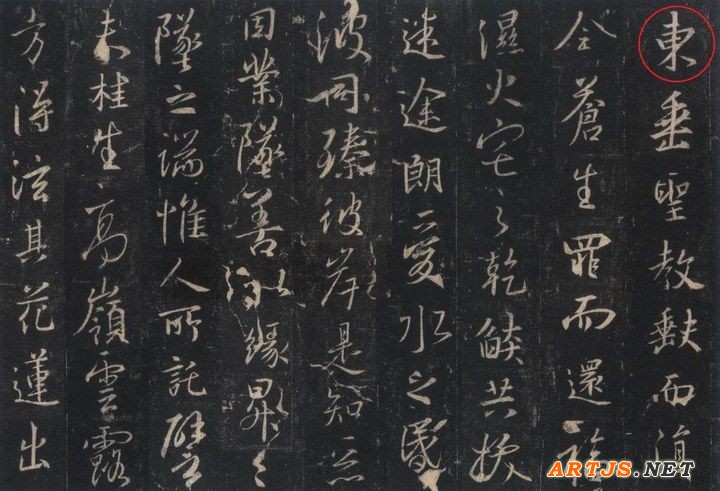 東垂聖教缺而復
全蒼生罪而還福
濕火宅之乾燄共拔
迷途朗愛水之昏
波同臻彼岸是知惡
因業墜善以緣昇々
墜之端惟人所託譬
夫桂生高嶺雲露
方得泫其花蓮出
ARTJS.NET